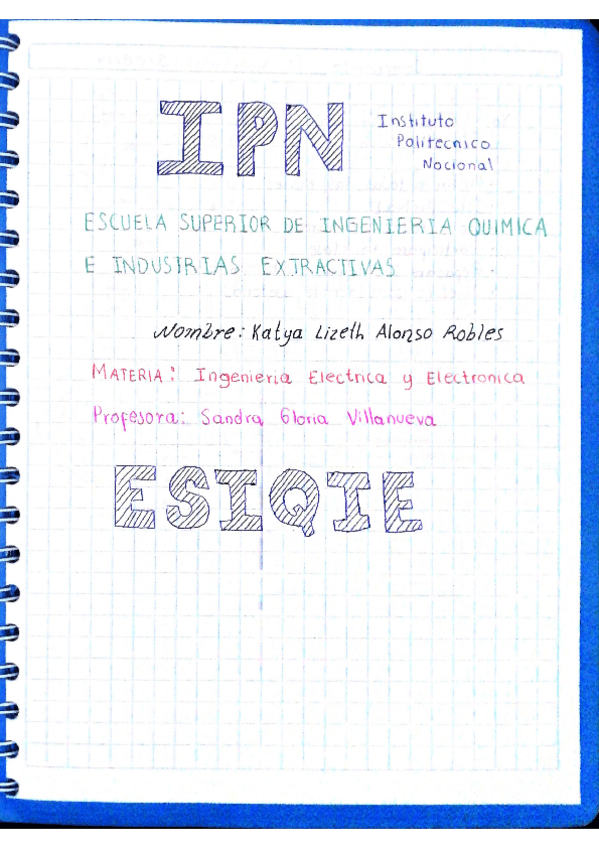 IPN
Instituto
Politecnico
Nacional
ESCUELA SUPERIOR DE INGENIERIA QUIMICA
E INDUSTRIAS EXTRACTIVAS
Nombre: Katya Lizeth Alonso Robles
MATERIA: Ingenieria Electrica y Electronica
Profesora: Sandra Gloria Villanueva
ESIQIE